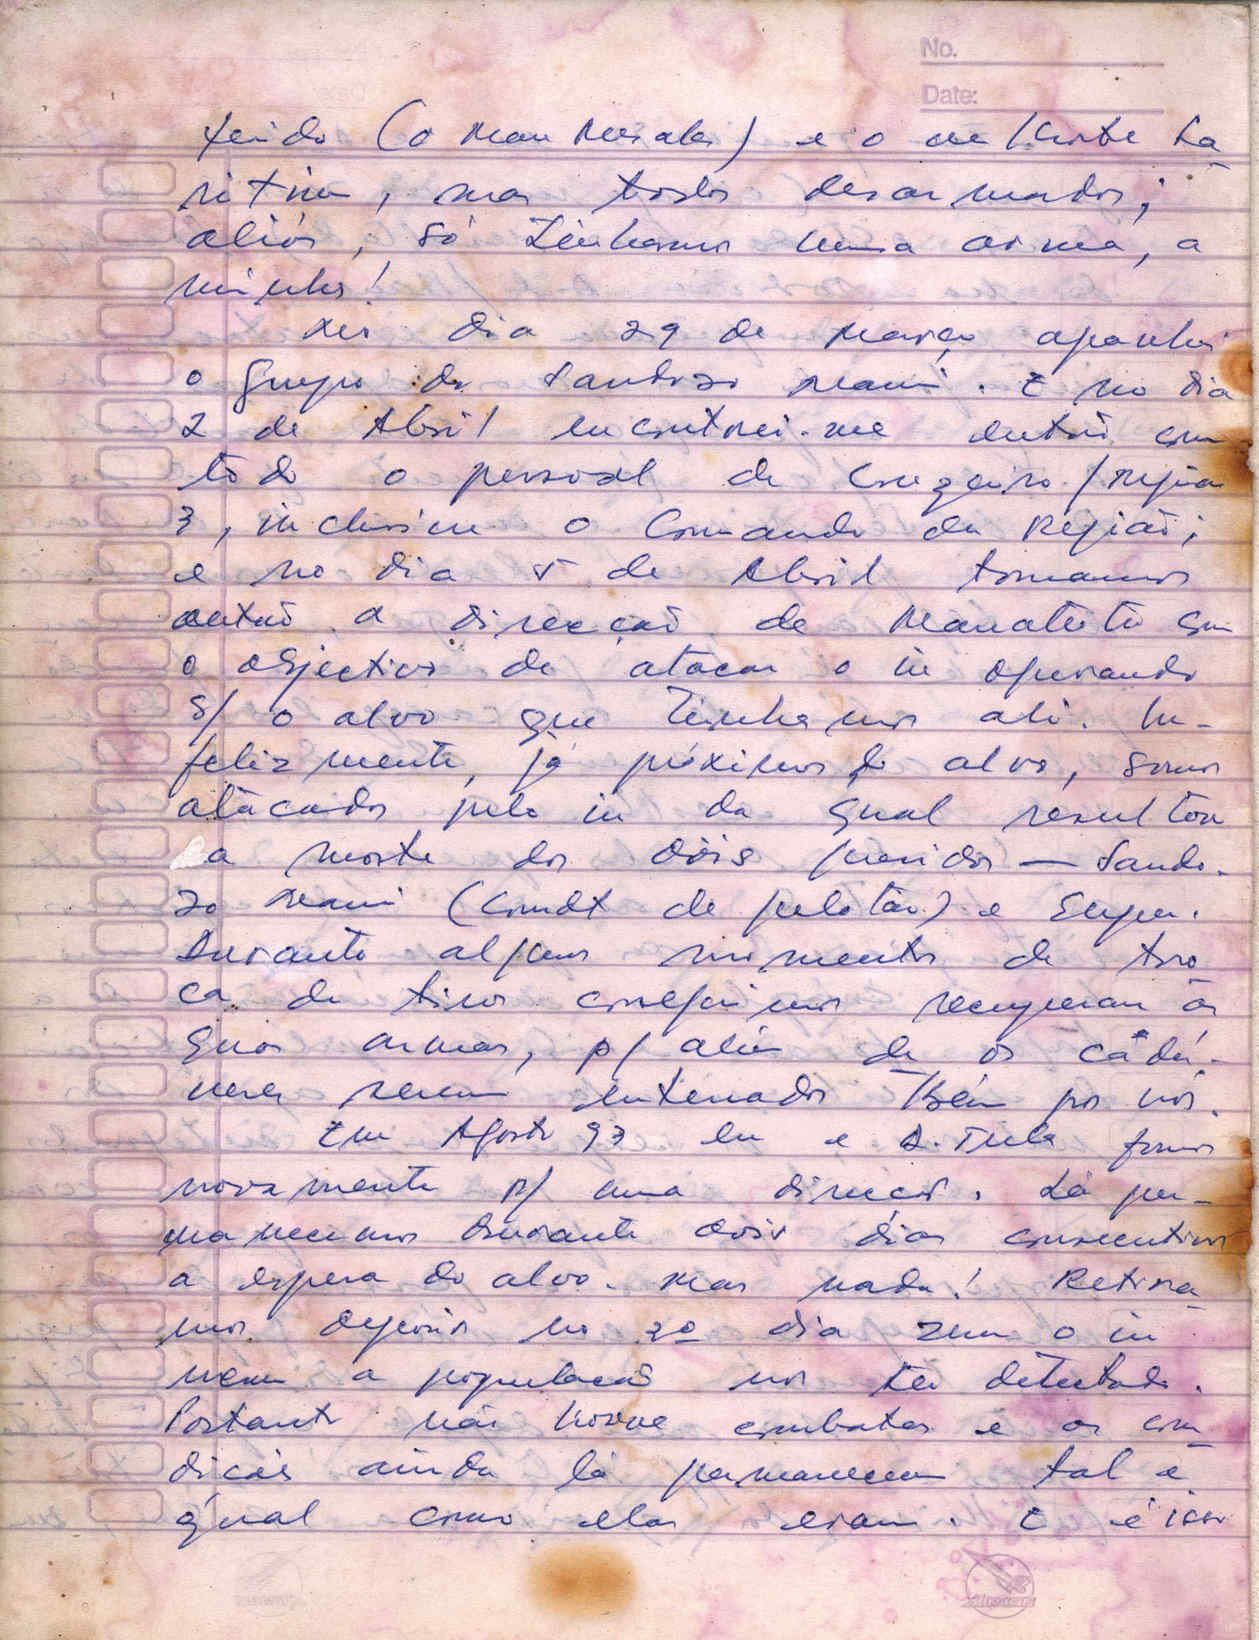 No.
Date:
ferido (o Mau Mesalas) e o
ritim, mas todos desarmados;
aliás, só tínhamos uma arma, a
minha!
No dia 29 de Março apanhei
o grupo do Sandozo Mauı. E no dia
2 de Abril encontrei-me então com
todo o pessoal de Cruzeiro/Região
3, inclusive o Comando da Região;
e no dia 5 de Abril tomamos
então a direcção de Manatuto com
o objectivo de atacar o in operando
s/ o alvo que tínhamos ali. In-
felizmente, já próximos do alvo, somos
atacados pelo in da qual resultou
a morte dos dois queridos — Sando-
zo Mauı (Comdt de pelotão) e
Durante alguns momentos de tro
ca de tiros conseguimos recuperar as
suas armas, p/ além de os cadá-
veres serem enterrados tbém por nós.
Em Agosto 93 eu e D. Tula fomos
novamente p/ uma direcção. Lá per-
manecemos durante dois dias consecutivos
a espera do alvo. Mas nada! Retira
mos depois no 3º dia sem o in
nem a população nos ter detectado.
Portanto não houve combates e as con
dições ainda lá permanecem tal e
qual como elas eram. E é isso